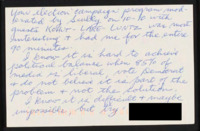 Your election campaign program mod-
erated by Suelly on 10-16 with
guests Kohut - Lake - Luntz was most
interesting & had me for the entire
90 minutes.
I know it is hard to achieve
political balance when 85% of
media is liberal vote persons
who do not believe it is part of the
problem & not the solution.
I know it is difficult & maybe
impossible, but try.